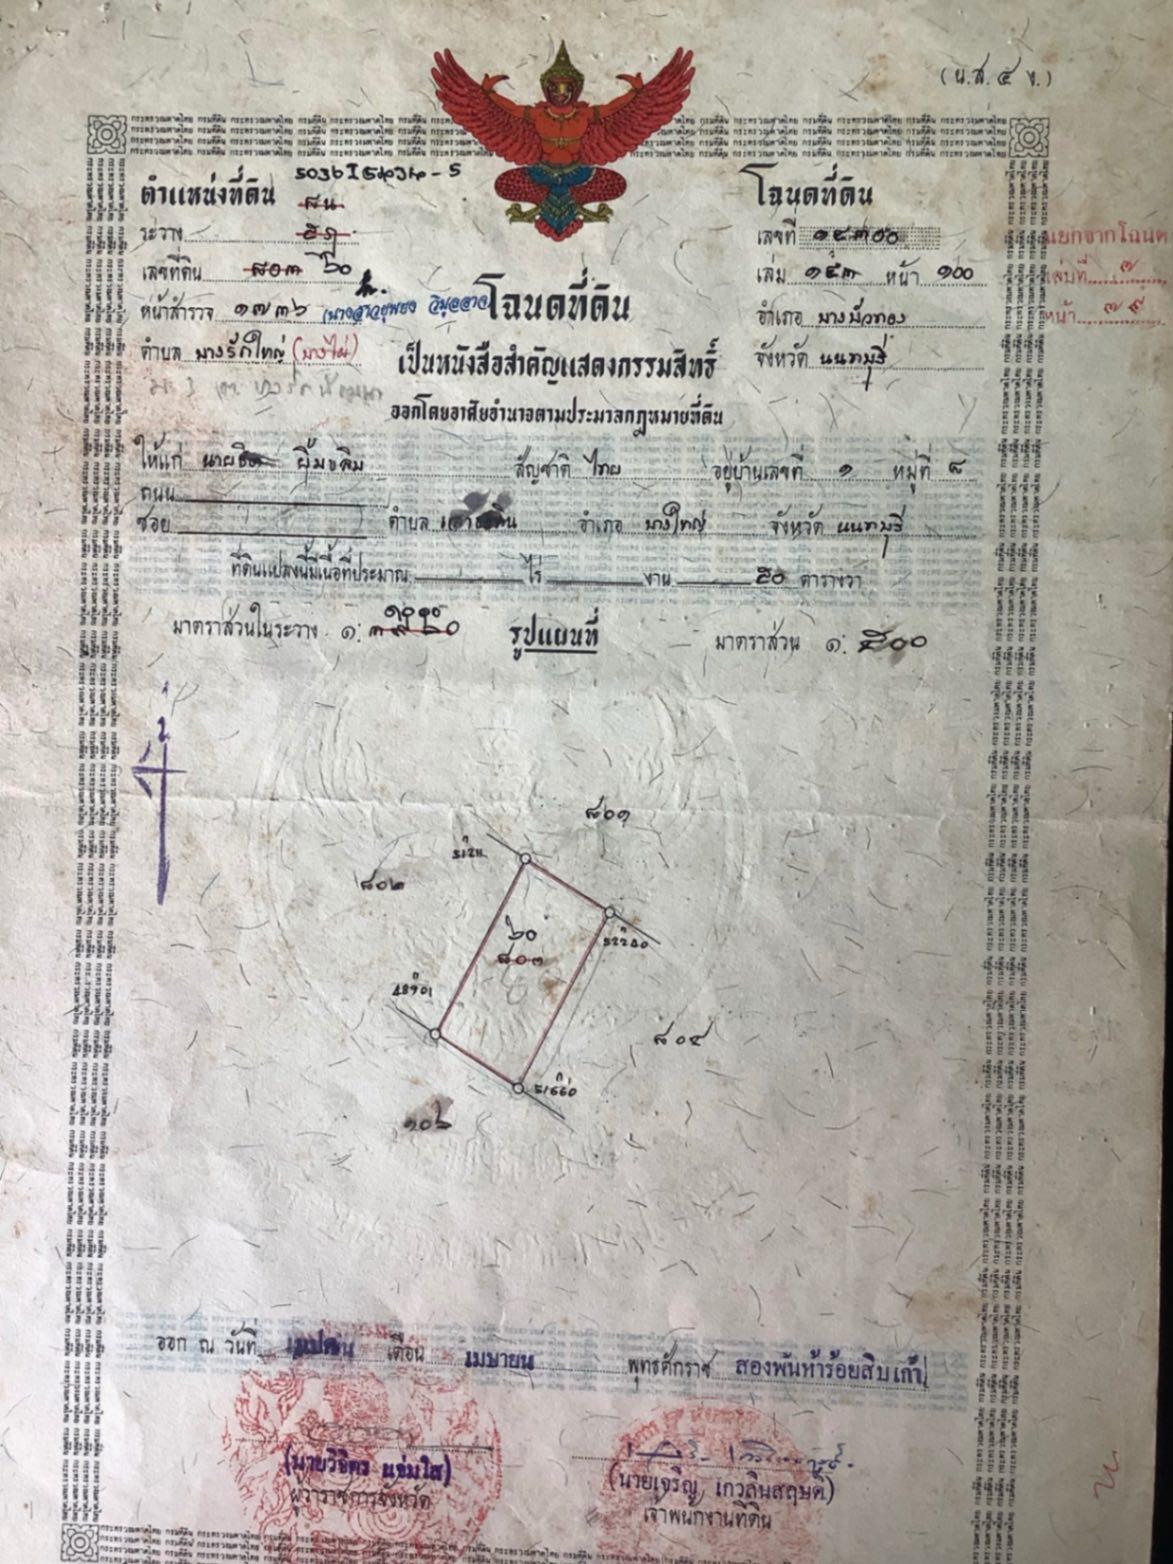 (น.ส. ๔ ง.)
ตำแหน่งที่ดิน
โฉนดที่ดิน
ระวาง
เลขที่ ๑๔๓๐๐
แยกจากโฉนด
เลขที่ดิน ๘๐๓ ๖๐
เล่ม ๑๔๓ หน้า ๑๐๐
เล่มที่ ๗
หน้าสำรวจ ๑๗๓๖
โฉนดที่ดิน
อำเภอ บางบัวทอง
หน้า ๗๙
ตำบล บางรักใหญ่ (บางไผ่)
เป็นหนังสือสำคัญแสดงกรรมสิทธิ์
จังหวัด นนทบุรี
ออกโดยอาศัยอำนาจตามประมวลกฎหมายที่ดิน
ให้แก่ นาย ยิ้มขลิบ สัญชาติ ไทย อยู่บ้านเลขที่ ๑ หมู่ที่ ๘
ถนน
ซอย ตำบล อำเภอ บางใหญ่ จังหวัด นนทบุรี
ที่ดินแปลงนี้มีเนื้อที่ประมาณ ไร่ งาน ๕๐ ตารางวา
มาตราส่วนในระวาง ๑:
รูปแผนที่
มาตราส่วน ๑: ๕๐๐
๘๐๑
๘๐๒
๖๐
๘๐๓
๘๐๔
๑๐๖
ออก ณ วันที่ เดือน เมษายน พุทธศักราช สองพันห้าร้อยสิบเก้า
(นายวิจิตร แจ่มใส)
ผู้ว่าราชการจังหวัด
(นายเจริญ เกวลินสฤษดิ์)
เจ้าพนักงานที่ดิน